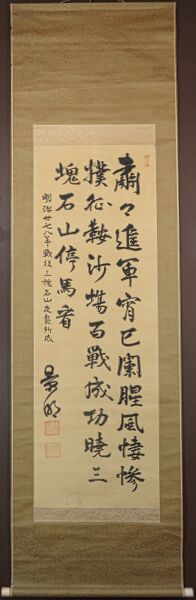 肅々進軍宵已闌腥風悽慘
撲征鞍沙塲百戰成功曉三
塊石山停馬看
明治卅七八年戰役三塊石山夜襲所感
景明